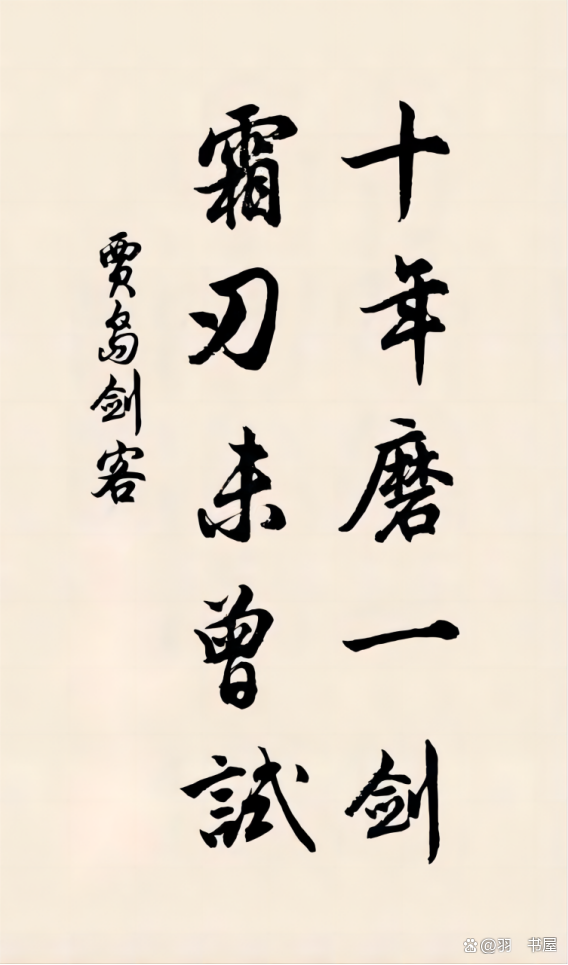 十年磨一剑
霜刃未曾試
賈島剑客
@羽 书屋